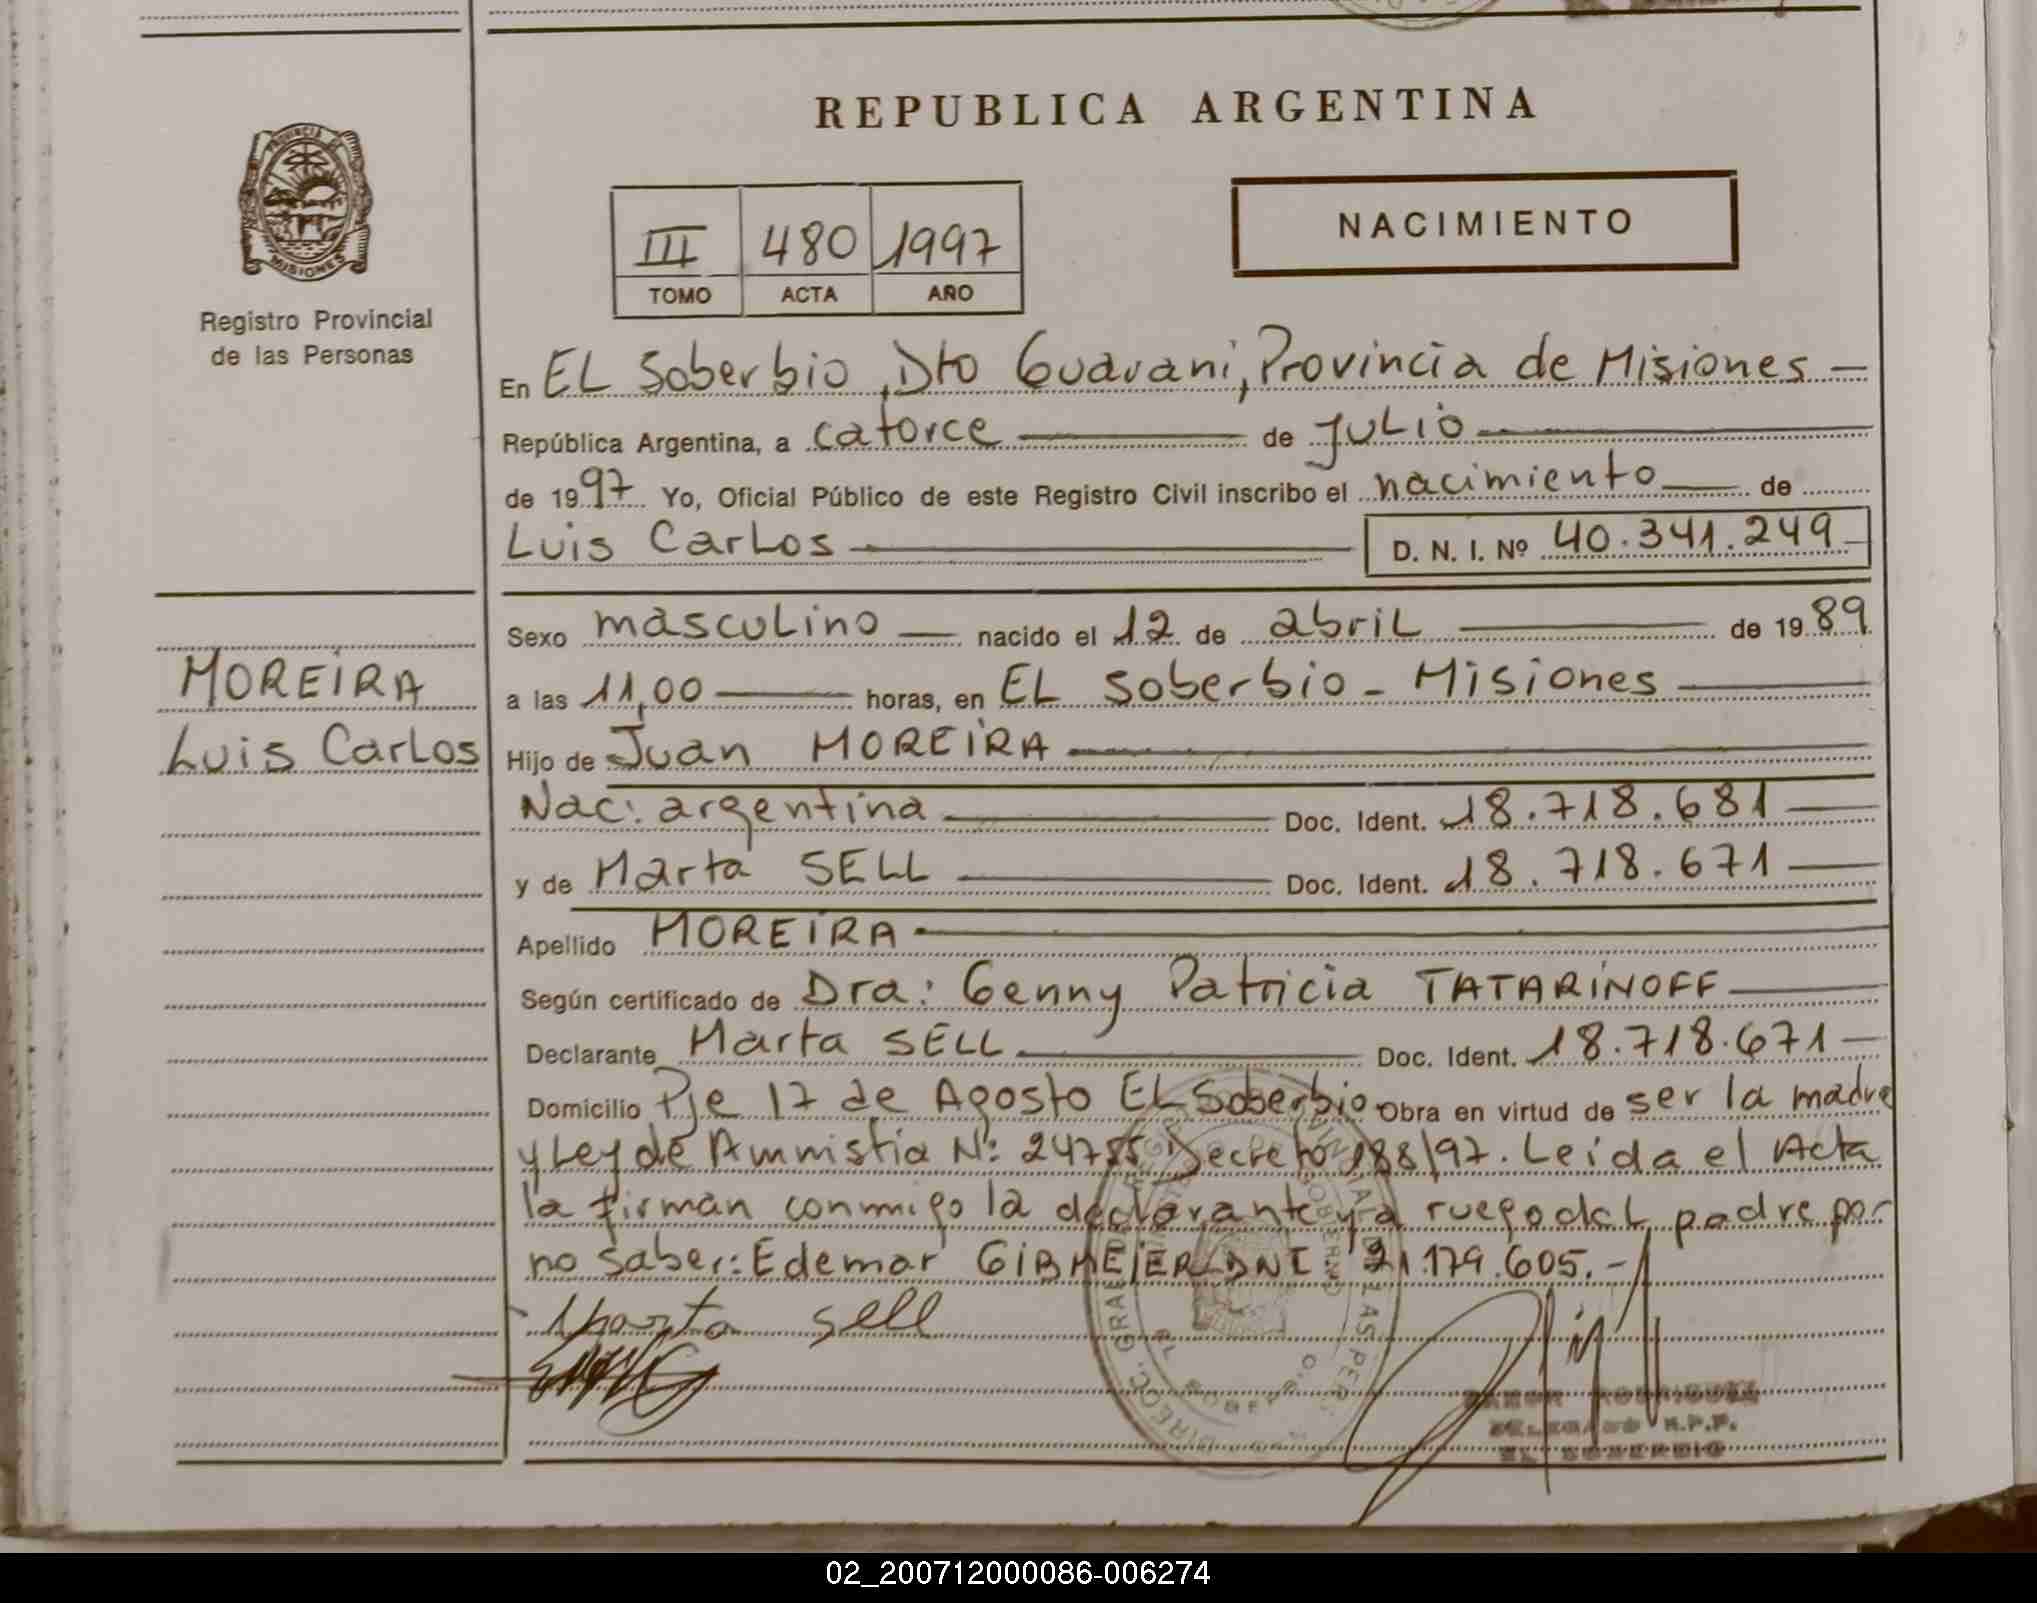 REPUBLICA ARGENTINA
PROVINCIA DE
MISIONES
Registro Provincial
de las Personas
III 480 1997
TOMO ACTA AÑO
NACIMIENTO
En EL Soberbio, Dto Guarani, Provincia de Misiones —
República Argentina, a catorce — de JULIO —
de 1997 Yo, Oficial Público de este Registro Civil inscribo el nacimiento — de
Luis Carlos — D. N. I. Nº 40.341.249
Sexo masculino — nacido el 12 de abril — de 1989
a las 11,00 — horas, en EL Soberbio - Misiones —
Hijo de Juan MOREIRA —
Nac: argentina — Doc. Ident. 18.718.681 —
y de Marta SELL — Doc. Ident. 18.718.671 —
Apellido MOREIRA —
Según certificado de Dra: Genny Patricia TATARINOFF —
Declarante Marta SELL — Doc. Ident. 18.718.671 —
Domicilio Pje 17 de Agosto EL Soberbio Obra en virtud de ser la madre
y Ley de Amnistia N: 24755 Decreto 188/97. Leída el Acta
la firman conmigo la declarante y a ruego del padre por
no saber: Edemar GIBMEIER DNI 21.179.605.-
Marta Sell
MOREIRA
Luis Carlos
RODRIGUEZ
DELEGADO R.P.P.
EL SOBERBIO
02_200712000086-006274